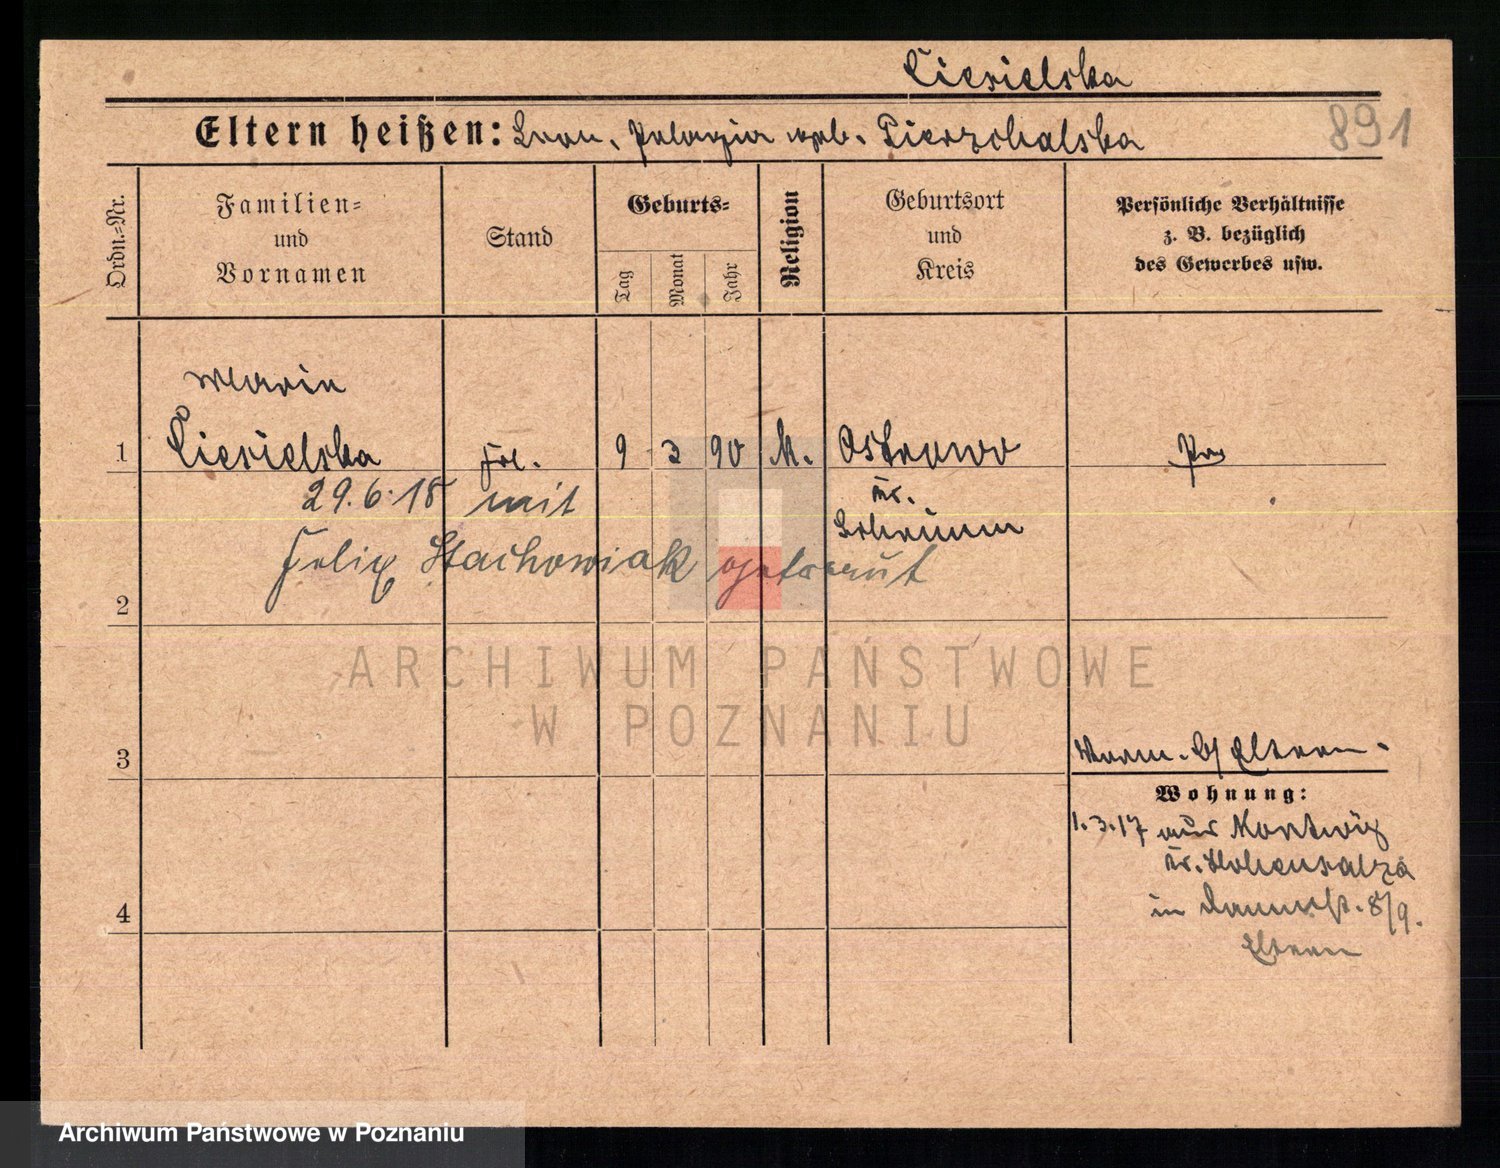 Ciesielska
Eltern heißen: Leon, Pelagia geb. Pierzchalska
891
Ordn.-Nr.
Familien-
und
Vornamen
Stand
Geburts-
Tag
Monat
Jahr
Religion
Geburtsort
und
Kreis
Persönliche Verhältnisse
z. B. bezüglich
des Gewerbes usw.
Maria
1 Ciesielska frl. 9 3 90 k. Ostrowo Pr
Kr.
Schrimm
29.6.18 mit
Felix Stachowiak getraut
2
ARCHIWUM PAŃSTWOWE
W POZNANIU
3
Eltern.
Wohnung:
1.3.17 aus
Kr. Hohensalza
in 8/9.
Eltern
4
Archiwum Państwowe w Poznaniu